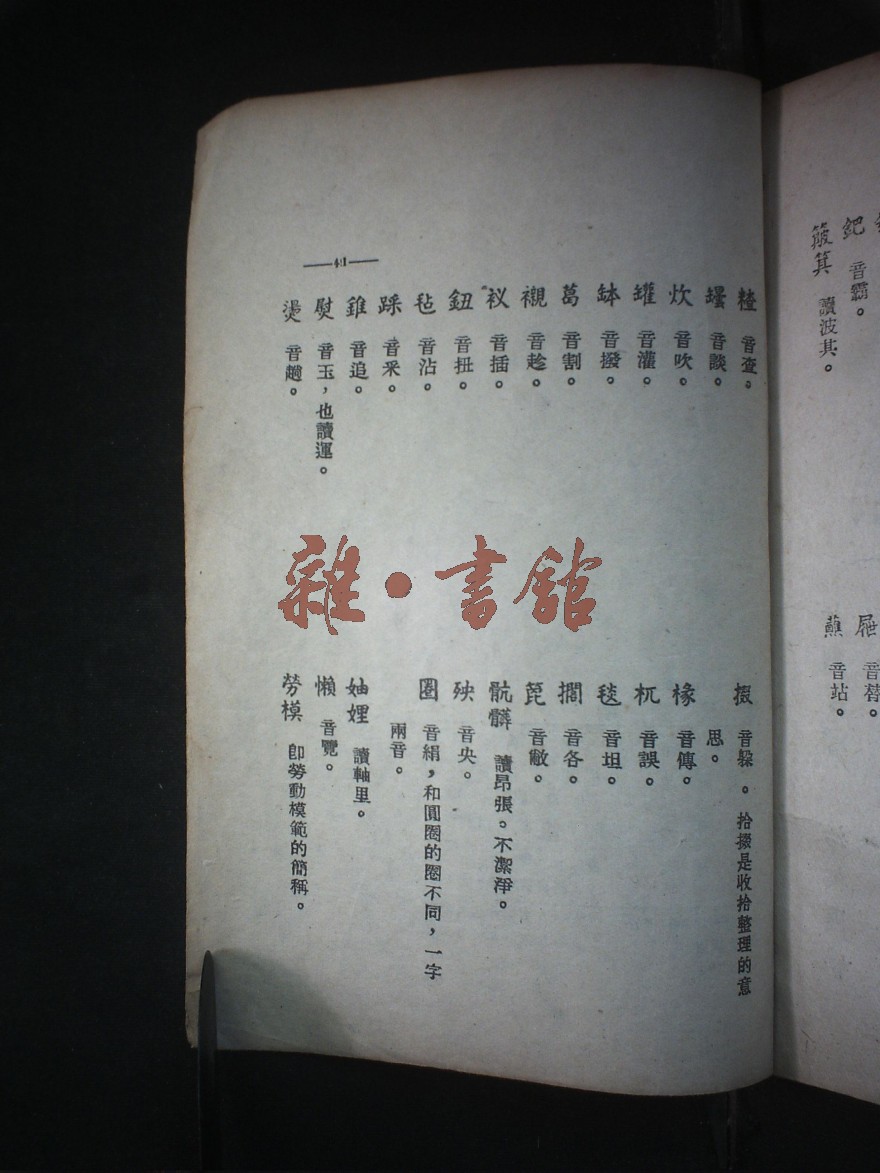 —41—
糌 音查。
罎 音談。
炊 音吹。
罐 音灌。
缽 音撥。
葛 音割。
襯 音趁。
衩 音插。
鈕 音扭。
毡 音沾。
踩 音采。
錐 音追。
熨 音玉，也讀運。
燙 音趟。
掇 音躲。拾掇是收拾整理的意
思。
椽 音傳。
杌 音誤。
毯 音坦。
擱 音各。
箆 音敝。
骯髒 讀昂張。不潔淨。
殃 音央。
圈 音絹，和圓圈的圈不同，一字
兩音。
妯娌 讀軸里。
懶 音覽。
勞模 卽勞動模範的簡稱。
雜·書館
鈀 音霸。
簸箕 讀波其。
屜 音替。
蘸 音站。